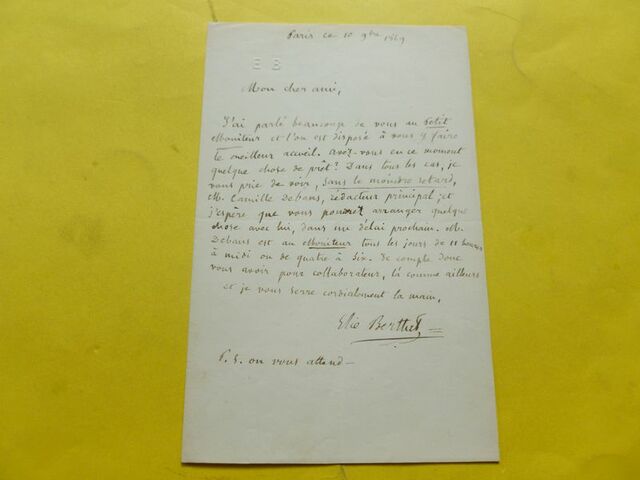 Paris ce 10 9bre 1869
E B
Mon cher ami,
J'ai parlé beaucoup de vous au Petit
Moniteur et l'on est disposé à vous y faire
le meilleur accueil. Avez-vous en ce moment
quelque chose de prêt? Dans tous les cas, je
vous prie de voir, sans le moindre retard,
M. Camille Debans, rédacteur principal; et
j'espère que vous pourrez arranger quelque
chose avec lui, dans un délai prochain. M.
Debans est au Moniteur tous les jours de 11 heures
à midi ou de quatre à six. Je compte donc
vous avoir pour collaborateur, là comme ailleurs
et je vous serre cordialement la main,
Elie Berthet
P. S. on vous attend —